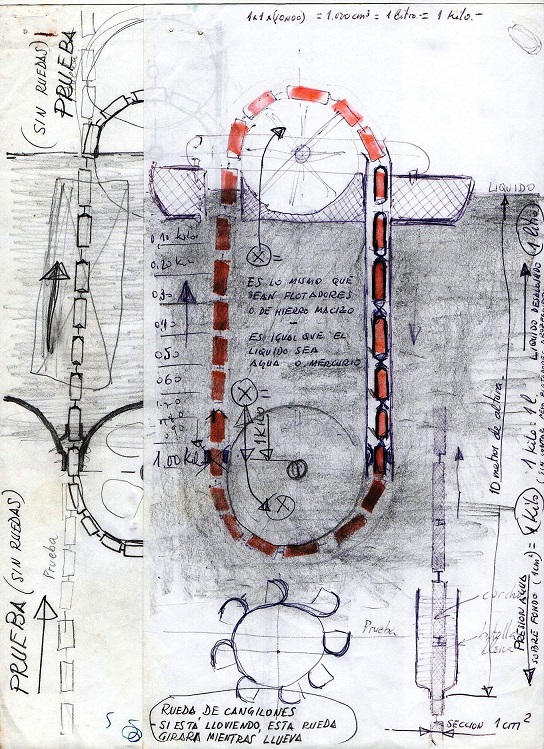 1x1x(FONDO) = 1.000 cm³ = 1 litro = 1 Kilo.-
(SIN RUEDAS)
PRUEBA
Prueba
LIQUIDO
0,10 Kilo
0,20 Ki
0,30
0,40
050
060
70
1.00 Kilo
ES LO MISMO QUE
SEAN FLOTADORES
O DE HIERRO MACIZO
-
ES IGUAL QUE EL
LIQUIDO SEA
AGUA O MERCURIO
1 KILO
10 metros de altura.
PRESION AGUA
SOBRE FONDO (1cm²) = 1 Kilo
1 Kilo = 1 l.
LIQUIDO DESALOJADO 1 litro
PRUEBA (SIN RUEDAS)
Prueba
Prueba
corcho
botella
llena
SECCION 1 cm²
RUEDA DE CANGILONES
- SI ESTÁ LLOVIENDO, ESTA RUEDA
GIRARÁ MIENTRAS LLUEVA